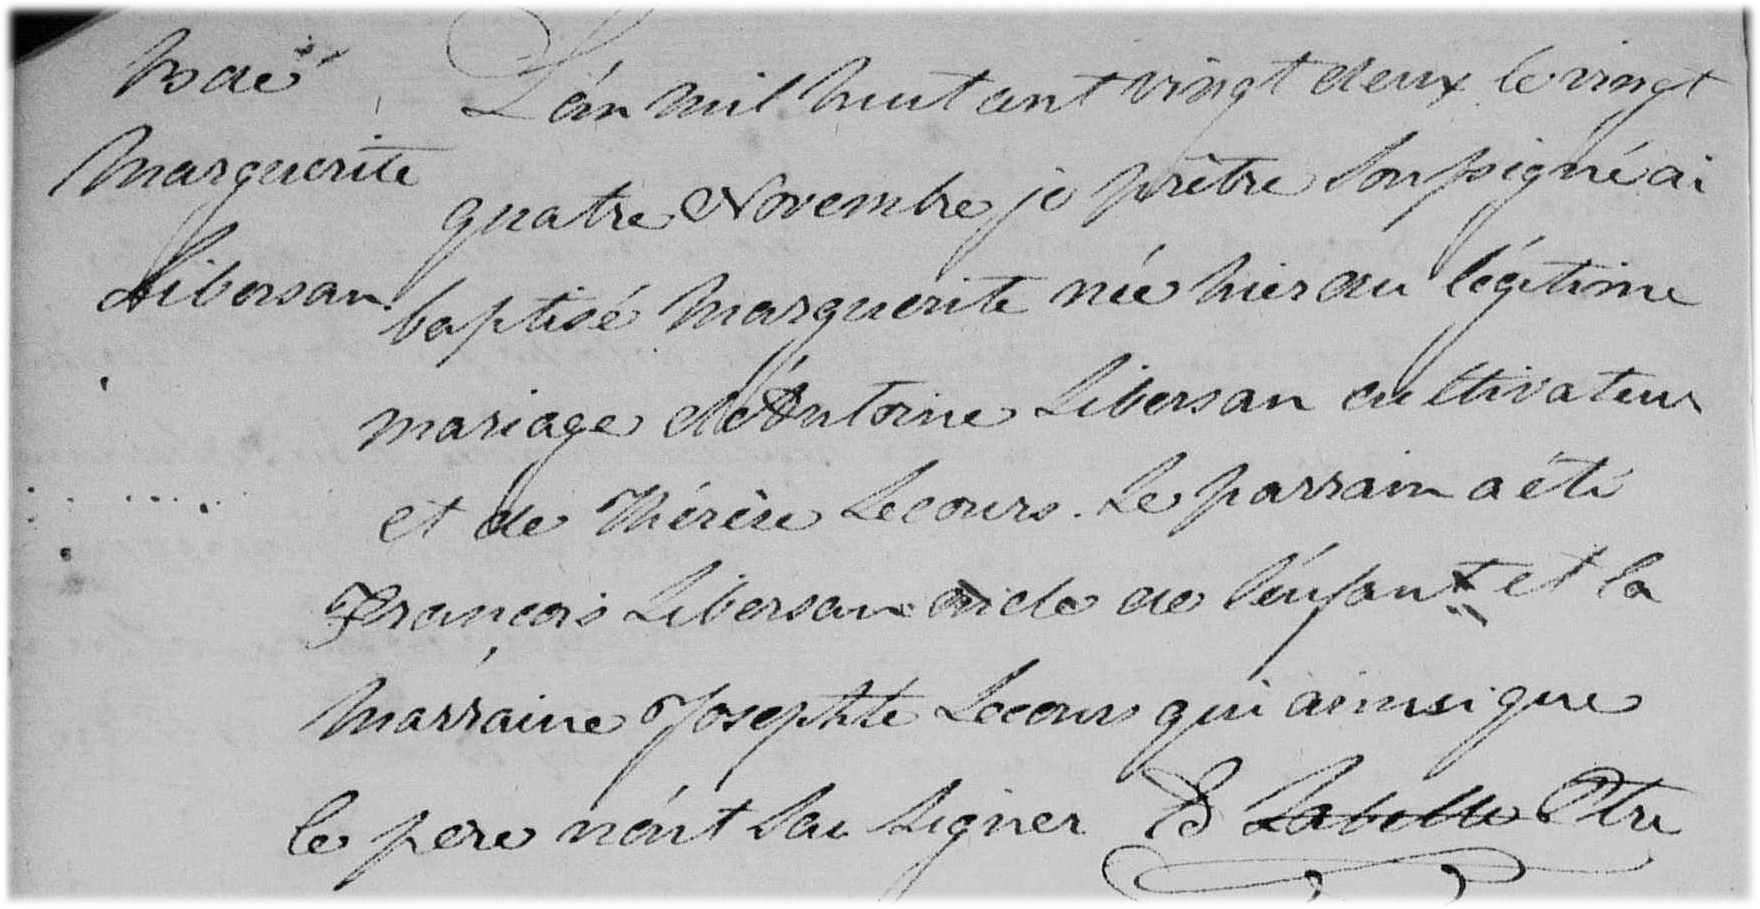 Marguerite
Libersan
L'án mil huit cent vingt deux le vingt
quatre Novembre je prêtre soussigné ai
baptisé Marguerite née hier du légitime
mariage de Antoine Libersan cultivateur
et de Thérèse Lecours. Le parrain a été
François Libersan oncle de l'énfant et la
marraine Josephte Lecours qui ainsi que
le pere nónt su signer Labelle Ptre